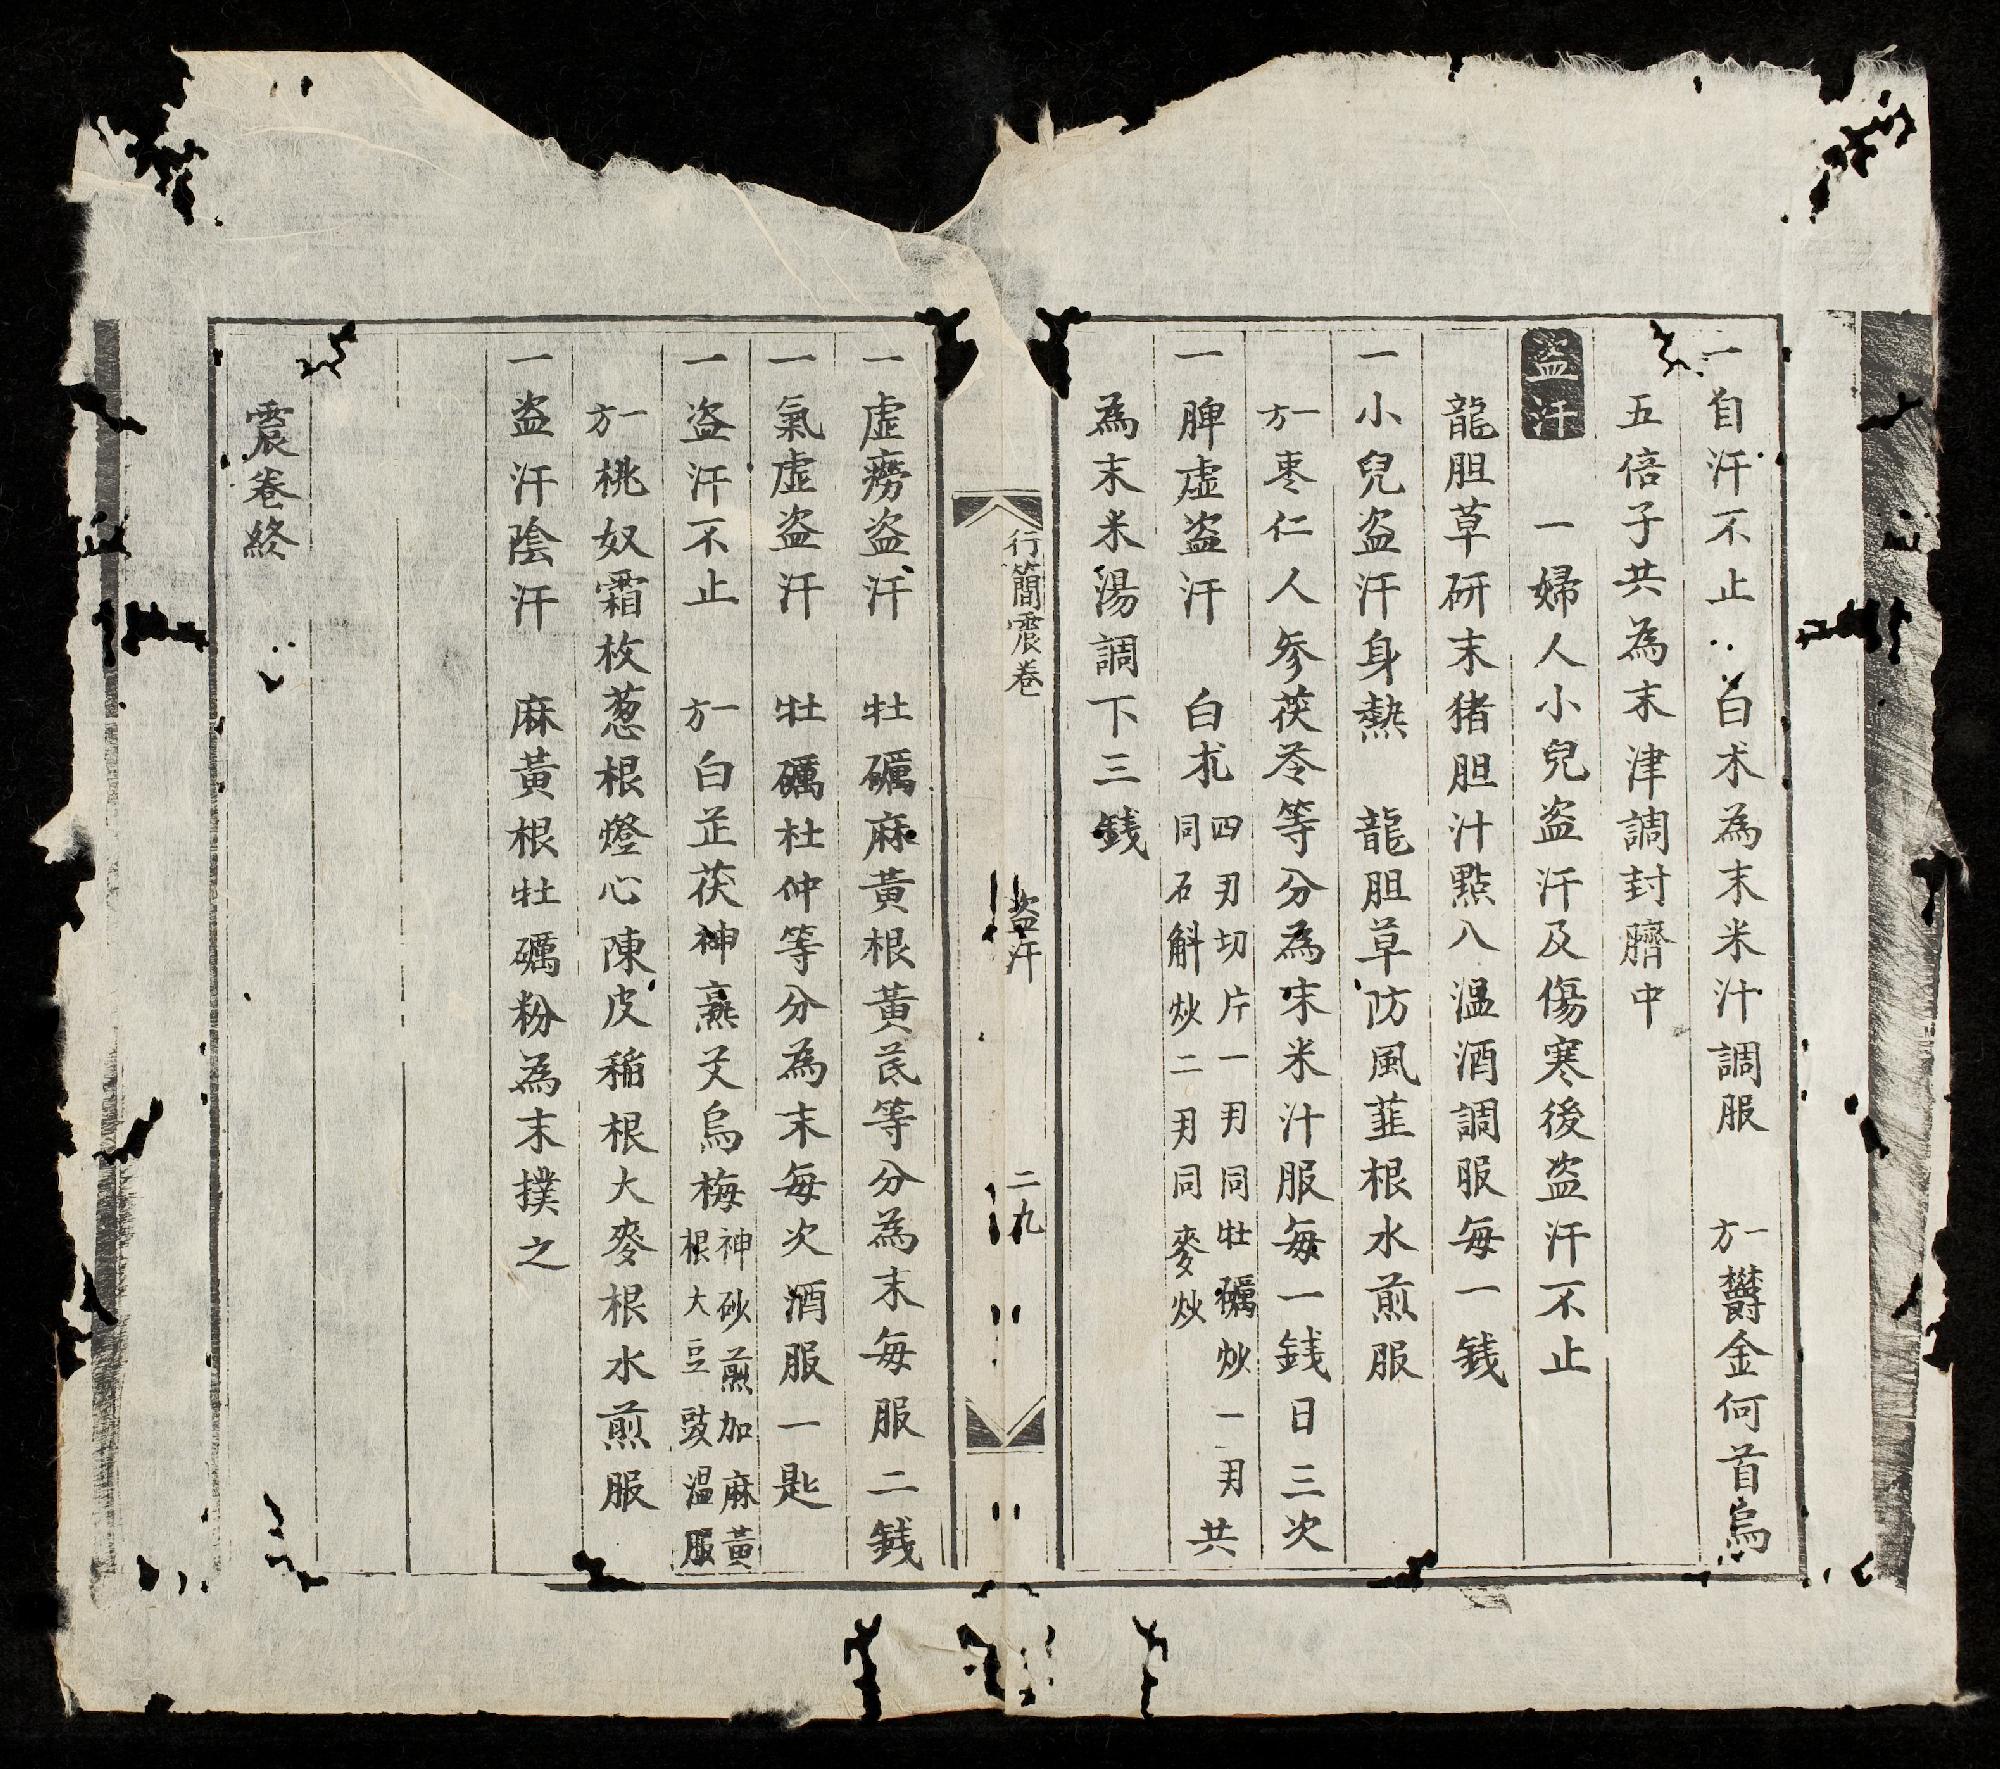 一自汗不止 白朮為末米汁調服 一方欝金何首烏
五倍子共為末津調封臍中
盗汗 一婦人小兒盗汗及傷寒後盗汗不止
龍胆草研末猪胆汁點八温酒調服每一銭
一小兒盗汗身熱 龍胆草防風韮根水煎服
一方枣仁人参茯苓等分為末米汁服每一銭日三次
一脾虚盗汗 白朮四刃切片一刃同牡礪炒一刃同石斛炒二刃同麥炒共
為末米湯調下三銭
行簡震卷 盗汗 二九
一虚癆盗汗 牡礪麻黄根黄芪等分為末每服二銭
一氣虚盗汗 牡礪杜仲等分為末每次酒服一匙
一盗汗不止 一方白芷茯神熹艾烏梅神砂煎加麻黄根大豆豉温服
一方桃奴霜枚葱根燈心陳皮稲根大麥根水煎服
一盗汗陰汗 麻黄根牡礪粉為末撲之
震卷終